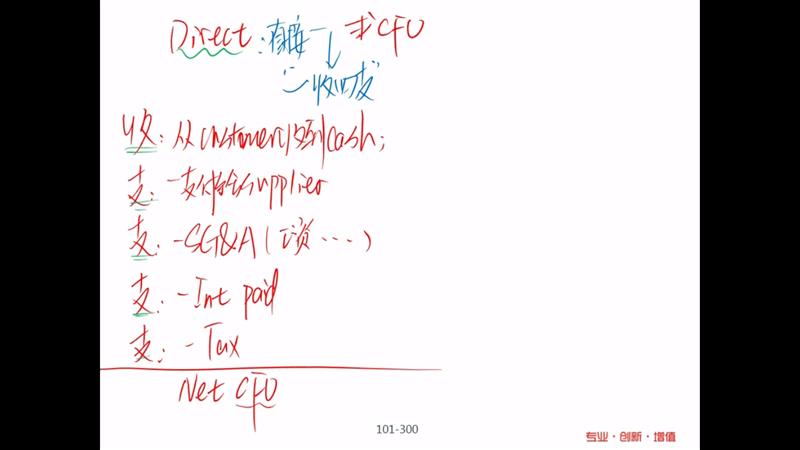 Direct:直接一求CFO
"一收四支"
收:从customer收到cash;
支:-支付给supplier
支:-SG&A(工资...)
支:-Int paid
支:-Tax
Net CFO
101-300
专业·创新·增值